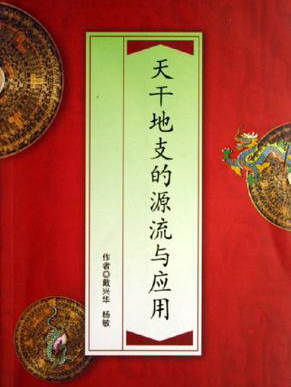 天干地支的源流与应用
作者◎戴兴华 杨敏